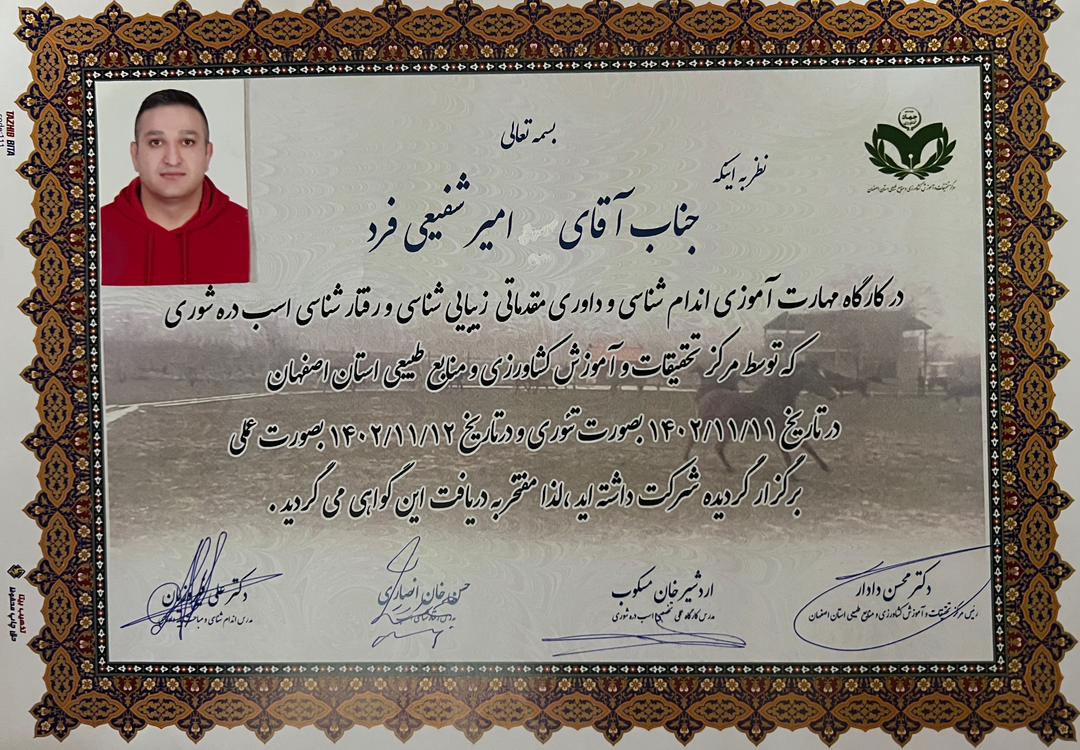 بسمه تعالی
نظر به اینکه
جناب آقای امیر شفیعی فرد
در کارگاه مهارت آموزی اندام شناسی و داوری مقدماتی زیبایی شناسی و رفتار شناسی اسب دره شوری
که توسط مرکز تحقیقات و آموزش کشاورزی و منابع طبیعی استان اصفهان
در تاریخ ۱۴۰۲/۱۱/۱۱ بصورت تئوری و در تاریخ ۱۴۰۲/۱۱/۱۲ بصورت عملی
برگزار گردیده شرکت داشته اید ، لذا مفتخر به دریافت این گواهی می گردید .
دکتر محسن دادار
رئیس مرکز تحقیقات و آموزش کشاورزی و منابع طبیعی استان اصفهان
اردشیر خان مسکوب
مدرس کارگاه عملی اسب دره شوری
حسن خان انصاری
دکتر علی
مدرس اندام شناسی و
جهاد
مرکز تحقیقات و آموزش کشاورزی و منابع طبیعی استان اصفهان
TAZHIB BITA
تذهیب بیتا
حق چاپ محفوظ